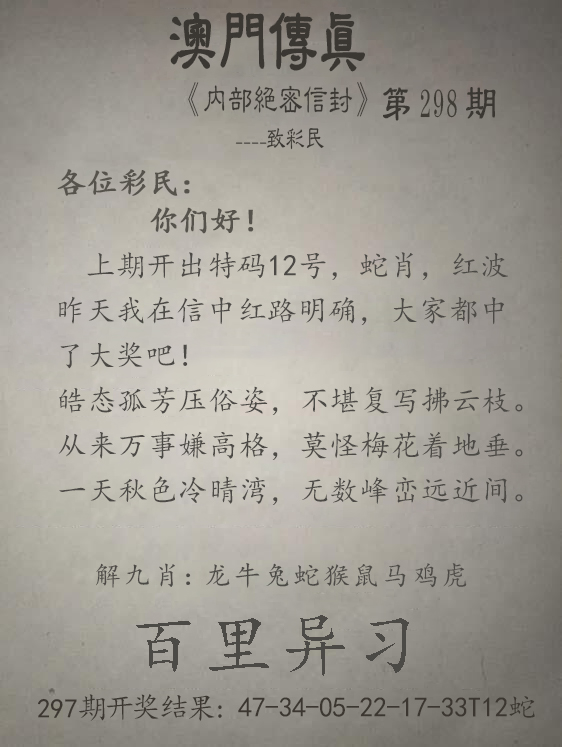 澳門傳眞
《内部絕密信封》第298期
----致彩民
各位彩民：
你们好！
上期开出特码12号，蛇肖，红波
昨天我在信中红路明确，大家都中
了大奖吧！
皓态孤芳压俗姿，不堪复写拂云枝。
从来万事嫌高格，莫怪梅花着地垂。
一天秋色冷晴湾，无数峰峦远近间。
解九肖：龙牛兔蛇猴鼠马鸡虎
百里异习
297期开奖结果：47-34-05-22-17-33T12蛇